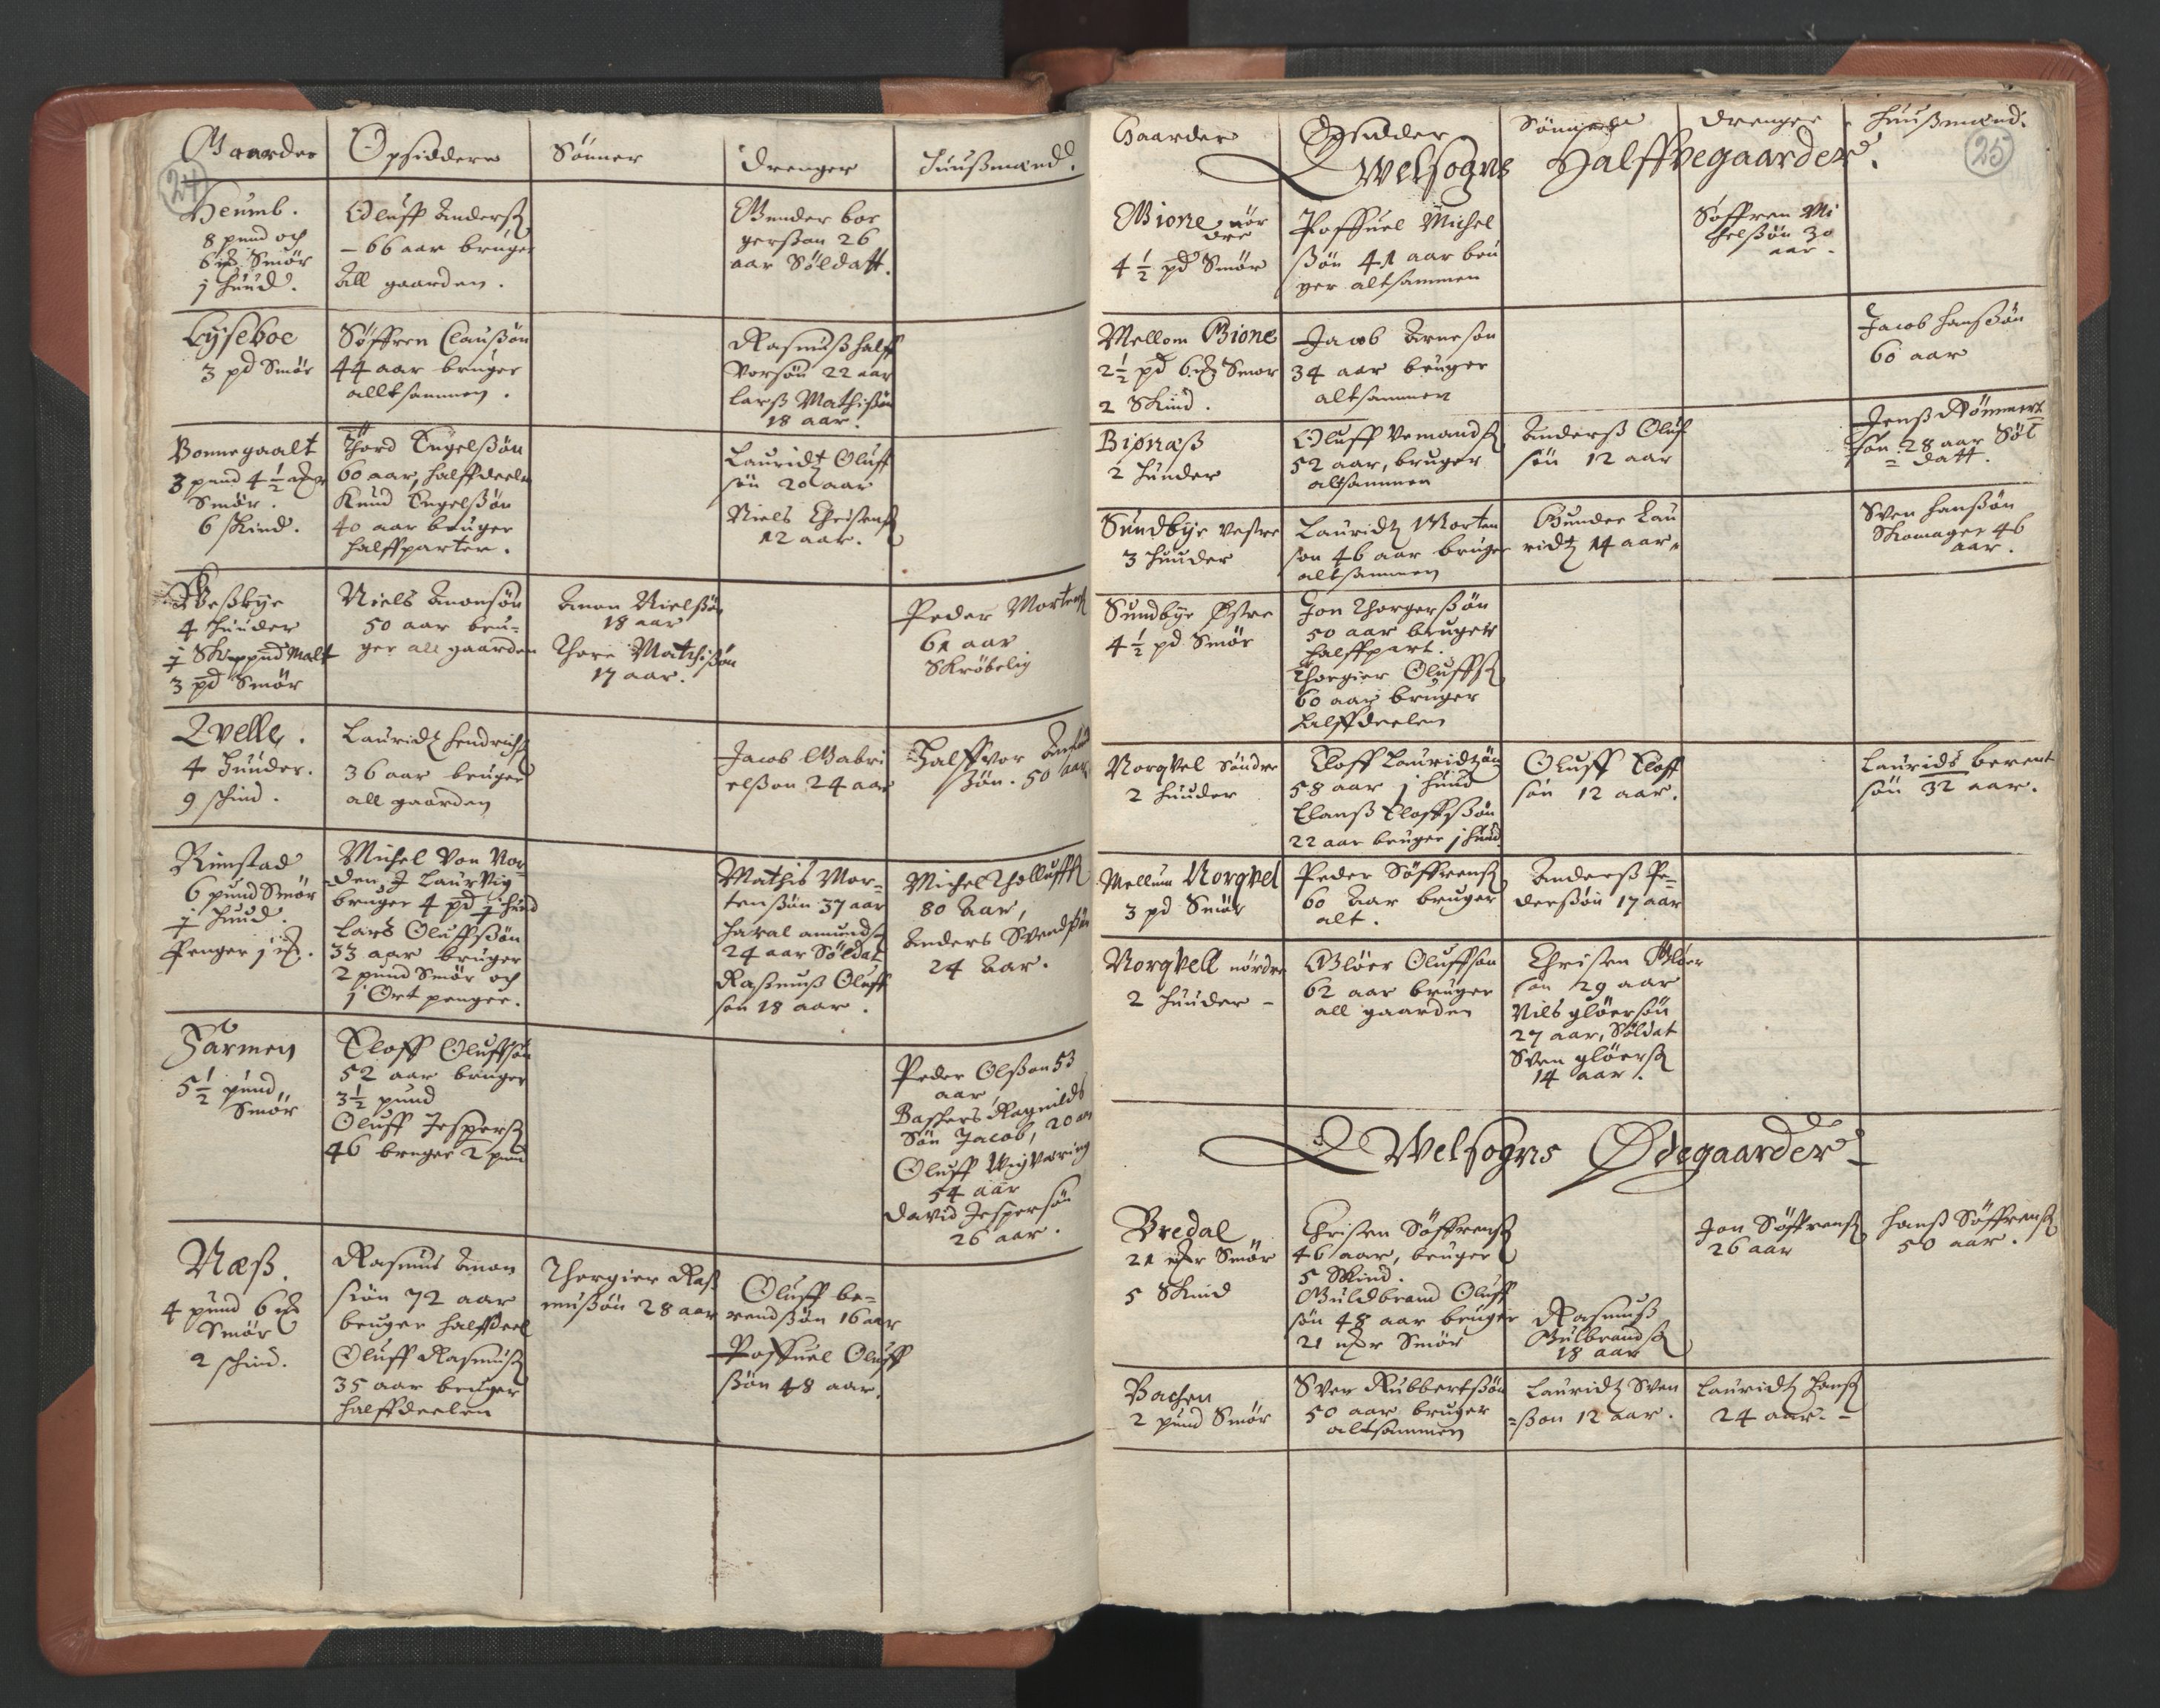 24
Gaarder Opsiddere Sønner Drenger Huußmænd.
Heumb.
8 pund och
Smør
j huud.
Oluff Anderß
66 aar bruger
All gaarden.
Gunder bor
gerßøn 26
aar Søldatt.
Lyseboe
3 pd Smør
Søffren Claußøn
44 aar bruger
alltsammen.
Rasmuß Halff
Vorsøn 22 aar
Larß Mathißøn
18 aar.
Bonnegaalt
3 pund 4 ½
Smør.
6 skind.
Thord Engelßøn
60 aar, halffdeelen
Knud Engelßøn
40 aar bruger
halffparten.
Lauridtz Oluff
søn 20 aar
Niels Christenß
12 aar.
4 huuder
Skippund Malt
3 pd Smør
Niels Amonsøn
50 aar bru-
ger all gaarden
Amon Nielßøn
18 aar
Thore Mathißøn
17 aar.
Peder Mortenß
61 aar
Skrøbelig
Qvelle.
4 Huuder.
9 schind.
Lauridtz Hendrichß
36 aar bruger
all gaarden
Jacob Gabri
elßøn 24 aar
Halffvor
ßøn. 50 aar
Rimstad
6 pund Smør
Huud.
Penger j
Michel Von Vor
den I Laurvig
bruger 4 pd huud
Lars Oluffßøn
33 aar bruger
2 pund Smør och
j Ort penger.
Mathis Mor-
tenßøn 37 aar
Haral amundß
24 aar Søldat
Rasmuß Oluff
søn 18 aar.
Michel Tholluffß
80 Aar,
Anders Svendßøn
24 Aar.
Farmen
5 ½ pund
Smør
Eloff Oluffsøn
52 aar bruger
3 ½ pund
Oluff Jesperß
46 bruger 2 pund
Peder Olßøn 53
aar
Ragnilds
Søn Jacob, 20 aar
Oluff
54 aar
David Jespersøn
26 aar.
Næß.
4 pund 6
Smør
2 schind.
Rasmus Amon
søn 72 aar
bruger halffdeel
Oluff Rasmuß
35 aar bruger
halffdeelen
Thorgier Raß
mußøn 28 aar
Oluff be-
rendßøn 16 aar
Poffuel Oluff
ßøn 48 aar.
25
Gaarder Opsidder Sønner Drenger Huußmænd.
Qwelsogns Halffvegaarder.
Gione nør
dre
4 ½ pd Smør
Poffuel Michel
ßøn 41 aar bru
ger altsammen
Søffren Mi
chelßøn 30
aar.
Mellom Gione
2 ½ pd 6 Smør
2 Skind.
Jacob Arnesøn
34 aar bruger
altsammen
Jacob Hanßøn
60 aar
Giønaß
2 Huuder
Oluff Vemandß
52 aar, bruger
altsammen
Anderß Oluf
søn 12 aar
Jenß
søn 28 aar Søl
datt.
Sundbye Vestre
3 huuder
Lauridtz Morten
søn 46 aar bruger
altsammen
Gunder Lau
ridtz 14 aar
Sven Hanßøn
Skomager 46
aar.
Sundbye Østre
4 ½ pd Smør
Jon Thorgerßøn
50 aar bruger
halffpart.
Thorgier Oluffß
60 aar bruger
halffdeelen
Norqvel Søndre
2 huuder
Eloff Lauridtzøn
58 aar j huud
Clauß Eloffßøn
22 aar bruger j huud
Oluff Eloff
søn 12 aar.
Laurids berent
søn 32 aar.
Mellum Norqvel
3 pd Smør
Peder Søffrenß
60 Aar bruger
alt.
Anderß Pe-
derßøn 17 aar
Norqvell nørdre
2 huuder -
Gløer Oluffsøn
62 aar bruger
all gaarden
Christen Gløer
søn 29 aar
Nils gløersøn
27 aar, Søldat
Sven gløerß
14 aar.
Qwelsogns Ødegaarder
Bredal
21 Smør
5 Skind
Christen Søffrenß
46 aar, bruger
5 Skind.
Guldbrand Oluff
søn 48 aar bruger
21 Smør
Rasmuß
Gulbrandß
18 aar
Jon Søffrenß
26 aar
Hanß Søffrenß
50 aar.
Bachen
2 pund Smør
Sven Rubbertßøn
50 aar bruger
altsammen
Lauridtz Sven
ßøn 12 aar.
Lauridtz Hanß
24 aar. -